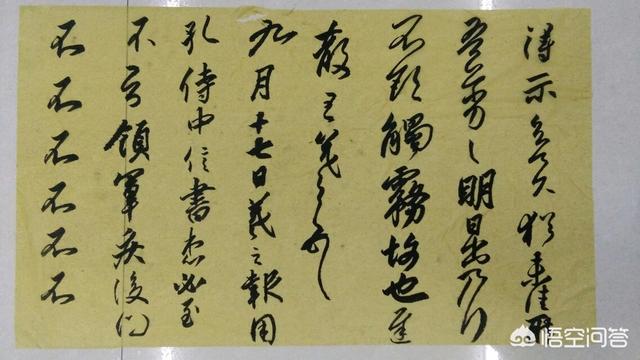 得示知足下猶未佳耿
吾亦劣々明日出乃行
不欲觸霧故也遲
散王羲之頓首
九月十七日羲之報因
孔侍中信書想必至
不知領軍疾後問
不不不不不不不
悟空问答